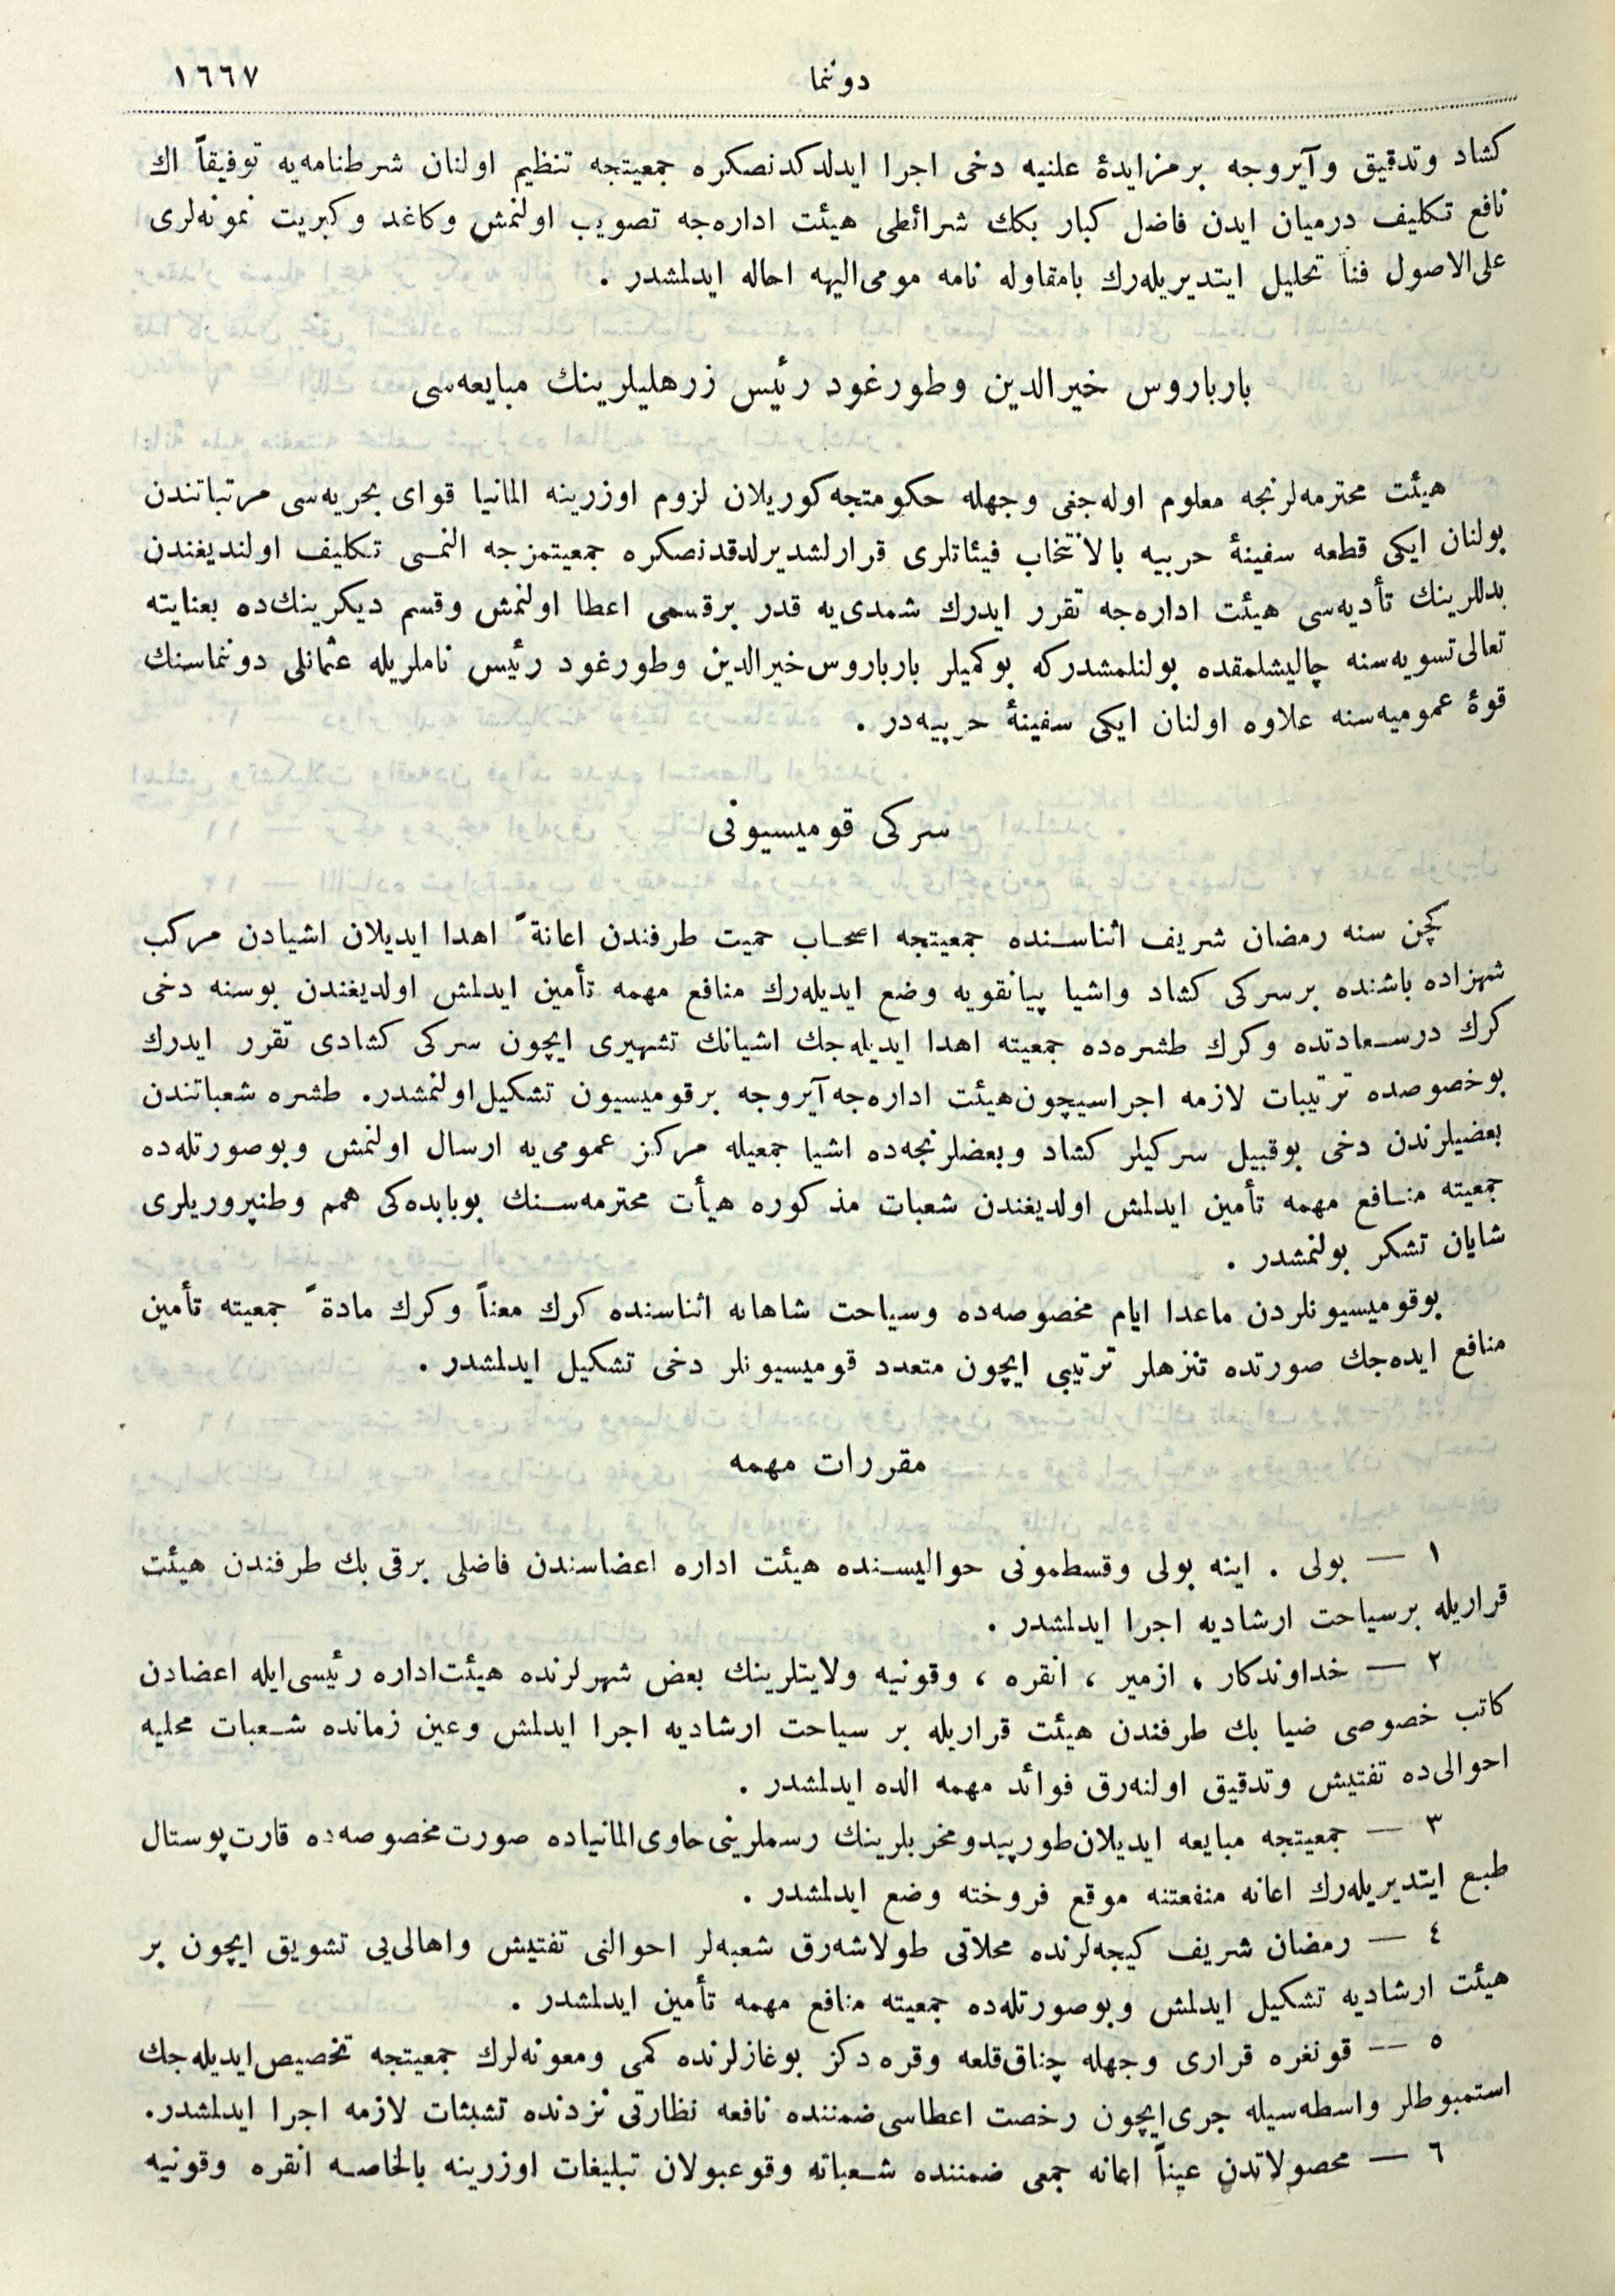 دوننما
١٦٦٧
كشاد وتدقيق وآيروجه برمزايدۀ علنيه دخى اجرا ايدلدكدنصكره جمعيتجه تنظيم اولنان شرطنامه‌يه توفيقاً اك
نافع تكليف درميان ايدن فاضل كبار بكك شرائطى هيئت اداره‌جه تصويب اولنمش وكاغد وكبريت نمونه‌لرى
على‌الاصول فناً تحليل ايتديريله‌رك بامقاوله نامه مومى‌اليهه احاله ايدلمشدر .
بارباروس خيرالدين وطورغود رئيس زرهليلرينك مبايعه‌سى
هيئت محترمه‌لرنجه معلوم اوله‌جغى وجهله حكومتجه كوريلان لزوم اوزرينه المانيا قواى بحريه‌سى مرتباتندن
بولنان ايكى قطعه سفينۀ حربيه بالانتخاب فيئاتلرى قرارلشديرلدقدنصكره جمعيتمزجه النمسى تكليف اولنديغندن
بدللرينك تأديه‌سى هيئت اداره‌جه تقرر ايدرك شمدى‌يه قدر برقسمى اعطا اولنمش وقسم ديكرينك‌ده بعنايته
تعالى تسويه‌سنه چاليشلمقده بولنلمشدركه بوكميلر بارباروس خيرالدين وطورغود رئيس ناملريله عثمانلى دوننماسنك
قوۀ عموميه‌سنه علاوه اولنان ايكى سفينۀ حربيه‌در .
سركى قوميسيونى
كچن سنه رمضان شريف اثناسنده جمعيتجه اصحاب حميت طرفندن اعانةً اهدا ايديلان اشيادن مركب
شهزاده باشنده برسركى كشاد واشيا پيانقويه وضع ايديله‌رك منافع مهمه تأمين ايدلمش اولديغندن بوسنه دخى
كرك درسعادتده وكرك طشره‌ده جمعيته اهدا ايديله‌جك اشيانك تشهيرى ايچون سركى كشادى تقرر ايدرك
بوخصوصده ترتيبات لازمه اجراسيچون هيئت اداره‌جه آيروجه برقوميسيون تشكيل اولنمشدر. طشره شعباتندن
بعضيلرندن دخى بوقبيل سركيلر كشاد وبعضلرنجه‌ده اشيا جمعيله مركز عمومى‌يه ارسال اولنمش وبوصورتله‌ده
جمعيته منافع مهمه تأمين ايدلمش اولديغندن شعبات مذكوره هيأت محترمه‌سنك بوبابده‌كى همم وطنپروريلرى
شايان تشكر بولنمشدر .
بوقوميسيونلردن ماعدا ايام مخصوصه‌ده وسياحت شاهانه اثناسنده كرك معناً وكرك مادةً جمعيته تأمين
منافع ايده‌جك صورتده تنزهلر ترتيبى ايچون متعدد قوميسيونلر دخى تشكيل ايدلمشدر .
مقررات مهمه
١ — بولى . اينه بولى وقسطمونى حواليسنده هيئت اداره اعضاسندن فاضلى برقى بك طرفندن هيئت
قراريله برسياحت ارشاديه اجرا ايدلمشدر .
٢ — خداوندكار ، ازمير ، انقره ، وقونيه ولايتلرينك بعض شهرلرنده هيئت‌اداره رئيسى ايله اعضادن
كاتب خصوصى ضيا بك طرفندن هيئت قراريله بر سياحت ارشاديه اجرا ايدلمش وعين زمانده شعبات محليه
احوالى‌ده تفتيش وتدقيق اولنه‌رق فوائد مهمه الده ايدلمشدر .
٣ — جمعيتجه مبايعه ايديلان طورپيدو مخربلرينك رسملرينى حاوى المانياده صورت مخصوصه‌ده قارت پوستال
طبع ايتديريله‌رك اعانه منفعتنه موقع فروخته وضع ايدلمشدر .
٤ — رمضان شريف كيجه‌لرنده محلاتى طولاشه‌رق شعبه‌لر احوالنى تفتيش واهالى‌يى تشويق ايچون بر
هيئت ارشاديه تشكيل ايدلمش وبوصورتله‌ده جمعيته منافع مهمه تأمين ايدلمشدر .
٥ — قونغره قرارى وجهله چناق‌قلعه وقره‌دكز بوغازلرنده كمى ومعونه‌لرك جمعيتجه تخصيص ايديله‌جك
استمبوطلر واسطه‌سيله جرى ايچون رخصت اعطاسى ضمننده نافعه نظارتى نزدنده تشبثات لازمه اجرا ايدلمشدر.
٦ — محصولاتدن عيناً اعانه جمعى ضمننده شعباته وقوعبولان تبليغات اوزرينه بالخاصه انقره وقونيه